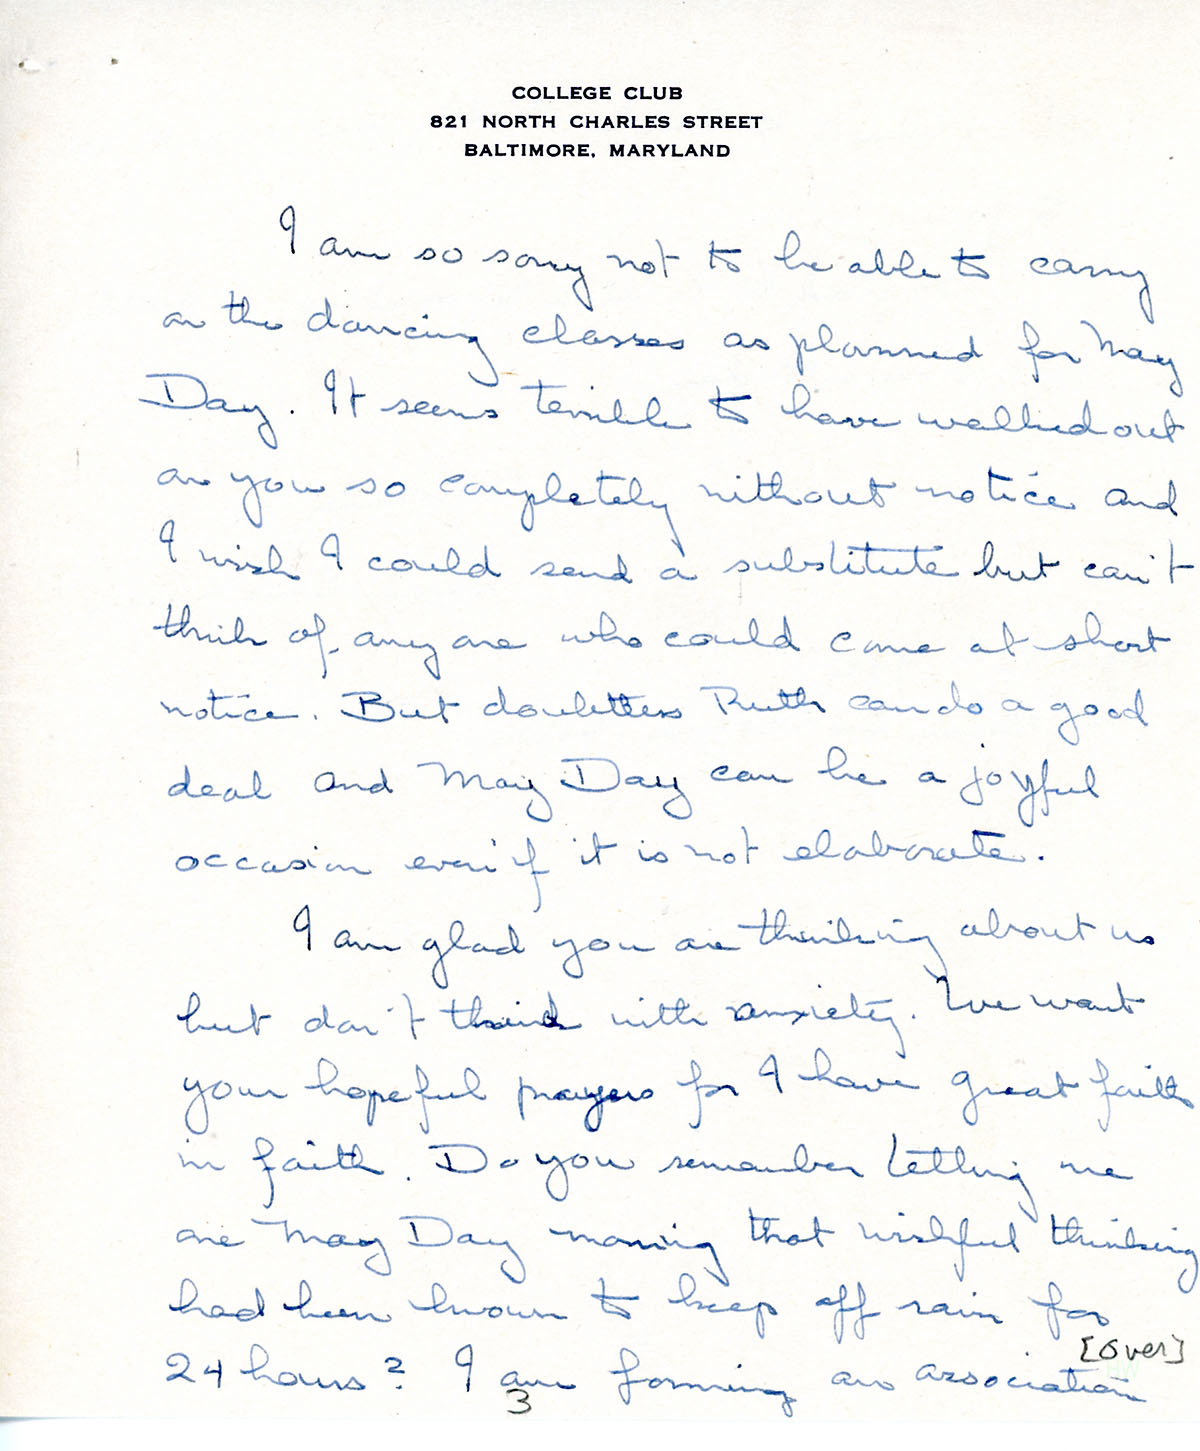 COLLEGE CLUB
821 NORTH CHARLES STREET
BALTIMORE, MARYLAND
I am so sorry not to be able to carry
on the dancing classes as planned for May
Day. It seems terrible to have walked out
on you so completely without notice and
I wish I could send a substitute but can't
think of anyone who could come at short
notice. But doubtless Ruth can do a good
deal and May Day can be a joyful
occasion even if it is not elaborate.
I am glad you are thinking about us
but don't think with anxiety. We want
your hopeful prayers for I have great faith
in faith. Do you remember telling me
one May Day morning that wishful thinking
had been known to keep off rain for
[over]
24 hours? I am forming an association
3